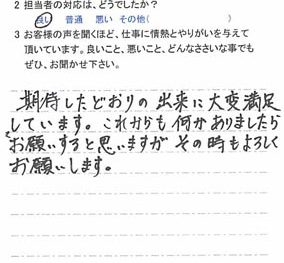 2 担当者の対応は、どうでしたか?
良い 普通 悪い その他( )
3 お客様の声を聞くほど、仕事に情熱とやりがいを与えて
頂いています。良いこと、悪いこと、どんなささいな事でも
ぜひ、お聞かせ下さい。
期待したどおりの出来に大変満足
しています。これからも何かありましたら
お願いすると思いますが その時もよろしく
お願いします。